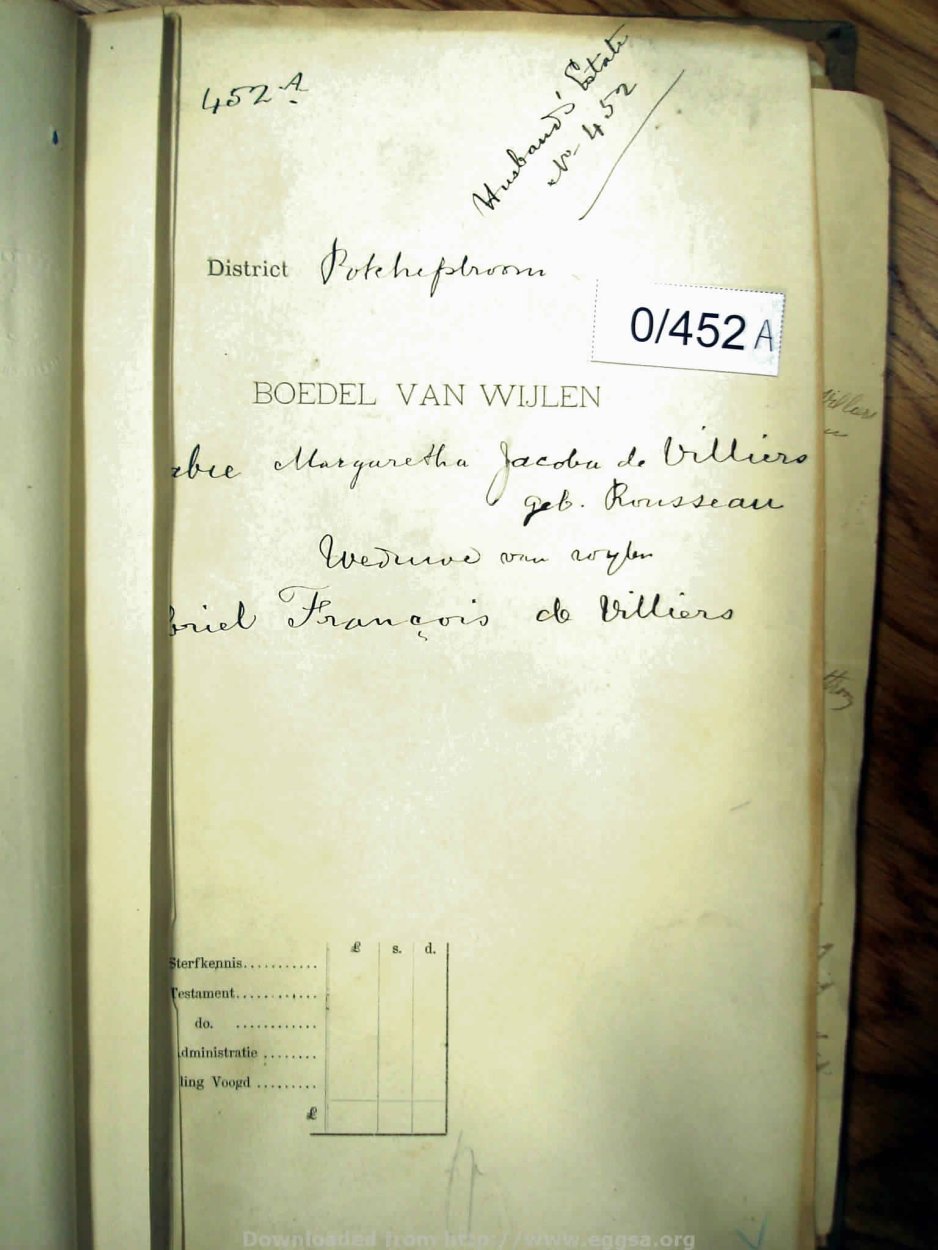 452 A
Husbands' Estate
No 452
District Potchefstroom
0/452 A
BOEDEL VAN WIJLEN
Margaretha Jacoba de Villiers
geb. Rousseau
Weduwe van wylen
briel François de Villiers
£ s. d.
Sterfkennis...........
Testament............
do. ............
dministratie ........
ling Voogd .........
£
Downloaded from http://www.eggsa.org